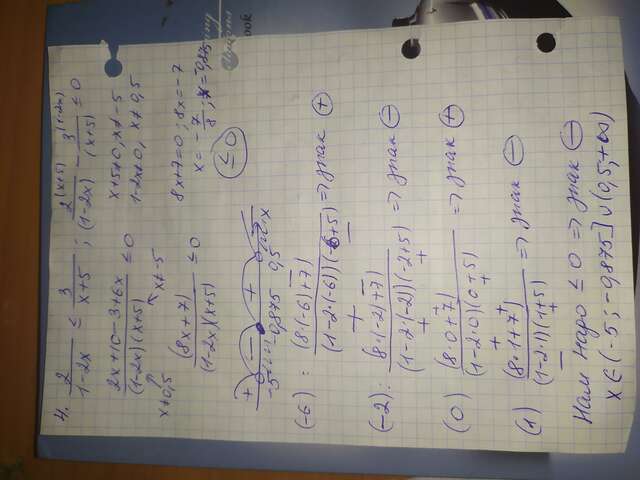 4. 2/(1-2x) ≤ 3/(x+5) ; 2^(x+5)/(1-2x) - 3^(1-2x)/(x+5) ≤ 0
(2x+10-3+6x)/((1-2x)(x+5)) ≤ 0 x+5≠0, x≠-5
x≠0,5 x≠-5 1-2x≠0, x≠0,5
(8x+7)/((1-2x)(x+5)) ≤ 0 8x+7=0; 8x=-7
x=-7/8; x=-0,875
≤0
+ - + -
-5 -0,875 0,5 x
(-6): (8·(-6)+7)/((1-2·(-6))(-6+5)) => знак +
(-2): (8·(-2)+7)/((1-2·(-2))(-2+5)) => знак -
(0) (8·0+7)/((1-2·0)(0+5)) => знак +
(1) (8·1+7)/((1-2·1)(1+5)) => знак -
Нам надо ≤ 0 => знак -
x∈(-5; -0,875]∪(0,5; +∞)